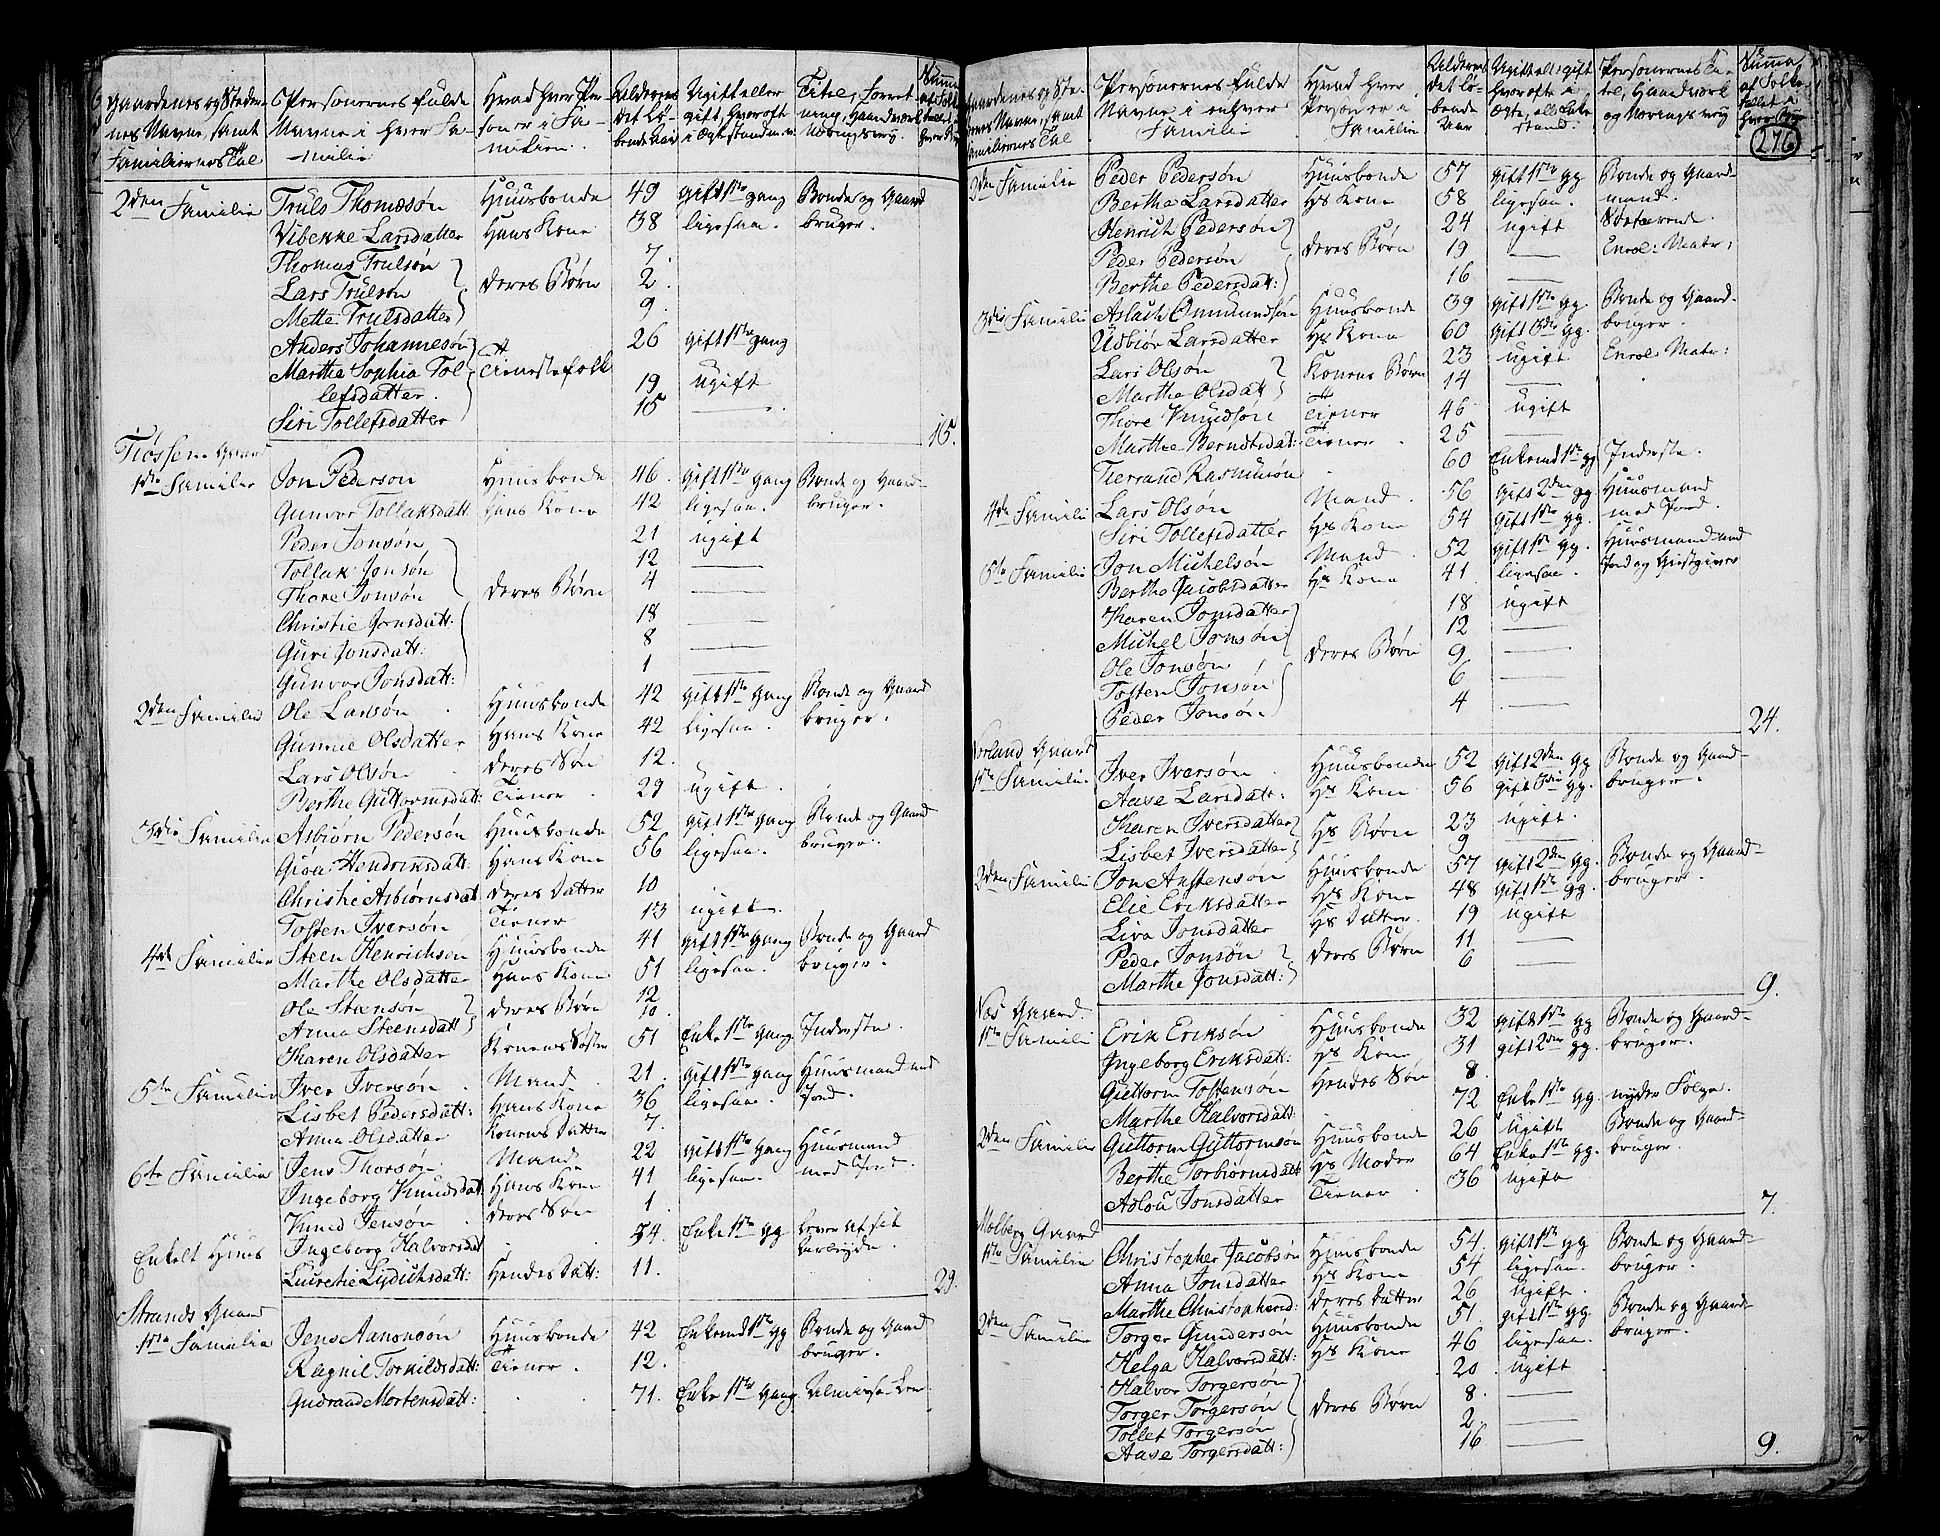 Gaardenes og Stedernes Navne, samt Familiernes Tal | Personernes fulde Navne i hver Familie | Hvad hver Person er i Familien | Alderen det løbende Aar | Ugift eller gift, hvorofte i Egtestanden | Titel, Forretning, Haandværk, Næringsvey
2den Familie | Truls Thomesøn | Huusbonde | 49 | gift 1ste gang | Bonde og Gaard
Vibekke Larsdatter | Hans Kone | 38 | ligesaa. | bruger.
Thomas Trulsøn | 7.
Lars Trulsøn | deres Børn | 2.
Mette Trulsdatter | 9.
Anders Johannesøn | 26 | gift 1ste gang
Martha Sophia Tol | Tienestefolk
lefsdatter. | 19 | ugift
Siri Tollefsdatter | 15 | —
15.
Tiøssem Gaard
1ste Familie | Jon Pederson | Huusbonde | 46. | gift 1ste gang | Bonde og Gaard-
Gunvor Tollaksdatt | Hans Kone | 42 | ligesaa. | bruger.
Peder Jonsøn | 21 | ugift
Tollak Jonsøn | 12 | —
Thore Jonsøn | deres Børn | 4 | —
Christie Jonsdatt: | 18 | —
Guri Jonsdatt: | 8 | —
Gunvor Jonsdatt: | 1 | —
2den Familie | Ole Larsøn | Huusbonde | 42 | gift 1ste gang | Bonde og Gaard
Gunnie Olsdatter | Hans Kone | 42 | ligesaa. | bruger.
Lars Olsøn | deres Søn | 12.
Berthe Guttormsdatt: | Tiener | 29 | ugift.
3die Familie | Asbiørn Pedersøn | Huusbonde | 52 | gift 1ste gang | Bonde og Gaard
Giøa Hendriksdatt: | Hans Kone | 56 | ligesaa. | bruger.
Christie Asbiørnsdat | deres Datter | 10
Tosten Iversøn | Tiener | 13 | ugift.
4de Familie | Steen Henrichsøn | Huusbonde | 41 | gift 1ste gang | Bonde og Gaard
Marthe Olsdatter | Hans Kone | 51 | ligesaa. | bruger.
Ole Steensøn | deres Børn | 12
Anna Steensdatt | 10.
Karen Olsdatter | Konens Søster | 51 | Enke 1ste gang | Inderste.
5te Familie | Iver Iversøn | Mand | 21. | gift 1ste gang | Huusmand med
Lisbet Pedersdatt: | Hans Kone | 36 | ligesaa. | Jord.
Anna Olsdatter | Konens Datter | 7.
6te Familie | Jens Thorsøn | Mand | 22 | gift 1ste gang | Huusmand
Ingeborg Knudsdat | Hans Kone | 41 | ligesaa. | med Jord.
Knud Jensøn | deres Søn | 1.
Enkelt Huus | Ingeborg Halvorsdat | 54. | Enke 1ste gg | Lever af sit Arbeyde.
Lucretie Lydichsdatt: | Hendes Datt: | 11.
29.
Strands Gaard
1ste Familie | Jens Aanonsøn | Huusbonde | 42 | Enkemd 1ste gg | Bonde og Gaard
Ragnil Torkildsdatt: | Tiener. | 12. | bruger.
Gudraad Mortensdatt: | 71. | Enke 1ste gang
Gaardenes og Stedernes Navne, samt Familiernes Tal | Personernes fulde Navne i enhver Familie | Hvad hver Person er i Familien | Alderen det løbende Aar | Ugift ell: gift hvorofte i Egte, ell: Enkestand | Personernes Titel, Haandværk og Nærings vey | Summa af Folketallet i hver
276
2den Familie | Peder Pedersøn | Huusbonde | 57 | gift 1ste gg | Bonde og Gaard-
Berthe Larsdatter | Hs Kone | 58 | ligesaa. | mand.
Henrich Pedersøn | 24 | ugift | Søefarende.
Peder Pedersøn | deres Børn | 19 | — | Enrol: Matr:
Berthe Pedersdatt: | 16 | —
3die Familie | Aslach Ommundsøn | Huusbonde | 39 | gift 1ste gg | Bonde og Gaard-
Usbiør Larsdatter | Hs Kone | 60 | gift 3die gg. | bruger.
Lars Olsøn | Konens Børn | 23 | ugift | Enrol: Matr:
Marthe Olsdatt | 14 | —
Thore Knudsøn | Tiener | 46 | ugift
Marthe Berndtsdat: | Tiener. | 25 | —
Tierand Rasmusøn | 60 | Enkemd 1ste gg | Inderste.
4de Familie | Lars Olsøn | Mand. | 56 | gift 2den gg | Huusmand
Siri Tollefsdatter | Hs Kone | 54 | gift 1ste gg. | med Jord.
5te Familie | Jon Michelsøn | Mand. | 52 | gift 1ste gg. | Huusmand med
Berthe Jacobsdatter | Hs Kone | 41. | ligesaa. | Jord og Giestgiver
Karen Jonsdatter | 18 | ugift
Michel Jonsøn | 12 | —
Ole Jonsøn | deres Børn | 9 | —
Tosten Jonsøn | 6 | —
Peder Jonsøn | 4 | —
24.
Norland Gaard
1ste Familie | Iver Iversøn | Huusbonde | 52 | gift 2den gg | Bonde og Gaard-
Aase Larsdatt: | Hs Kone | 56 | gift 3die gg. | bruger.
Karen Iversdatter | Hs Børn | 23 | ugift.
Lisbet Iversdatter | 9 | —
2den Familie | Jon Austenson | Huusbonde | 57 | gift 2den gg. | Bonde og Gaard-
Elie Eriksdatter | Hs Kone | 48 | gift 1ste gg. | bruger.
Liva Jonsdatter | Hs Datter. | 19 | ugift
Peder Jonsøn | deres Børn | 11 | —
Marthe Jonsdatt: | 6 | —
9.
Næs Gaard
1ste Familie | Erik Eriksøn | Huusbonde | 32 | gift 1ste gg | Bonde og Gaard-
Ingeborg Eriksdatt: | Hs Kone | 31 | gift 2den gg. | bruger.
Guttorm Tostensøn | Hendes Søn | 8.
Marthe Halvorsdatt: | 72 | Enke 1ste gg. | nyder Folge.
2den Familie | Guttorm Guttormsøn | Huusbonde | 26 | ugift | Bonde og Gaard-
Berthe Torbiørnsdatt | Hs Moder | 64 | Enke 1ste gg. | bruger.
Aslou Jonsdatter | Tiener. | 36 | ugift
7.
Molberg Gaard
1ste Familie | Christopher Jacobsøn | Huusbonde | 54 | gift 1ste gg | Bonde og Gaard-
Anna Jonsdatter | Hs Kone | 54 | ligesaa. | bruger.
Marthe Christophersd: | deres Datter | 26 | ugift.
2den Familie | Torger Gundersøn | Huusbonde | 51. | gift 1ste gg. | Bonde og Gaard-
Helga Halvorsdatt: | Hs Kone | 46 | ligesaa. | bruger.
Halvor Torgersøn | 20 | ugift
Torger Torgersøn | deres Børn | 8. | —
Tollef Torgersøn | 2. | —
Aase Torgersdatt: | 16 | —
9.